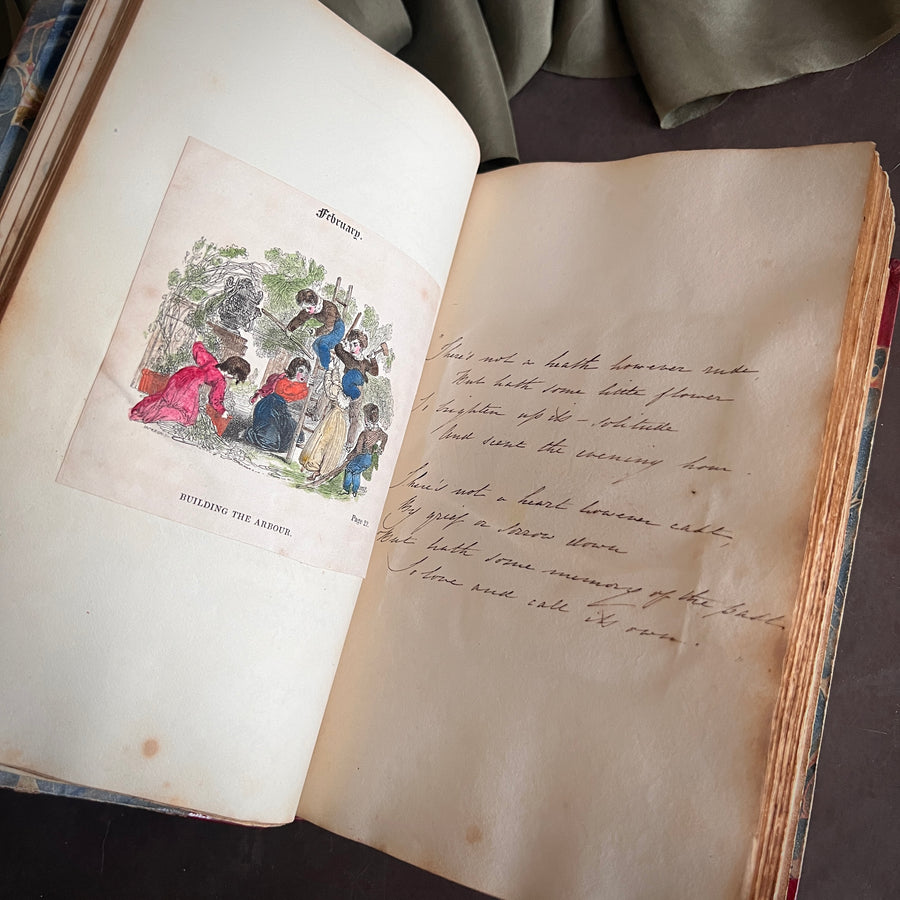 February.
BUILDING THE ARBOUR.
Page 22.
"There's not a heath however rude,
But hath some little flower
To brighten up its - solitude
And scent the evening hour.
There's not a heart however cast,
By grief or sorrow down
But hath some memory of the past.
To love and call its own."